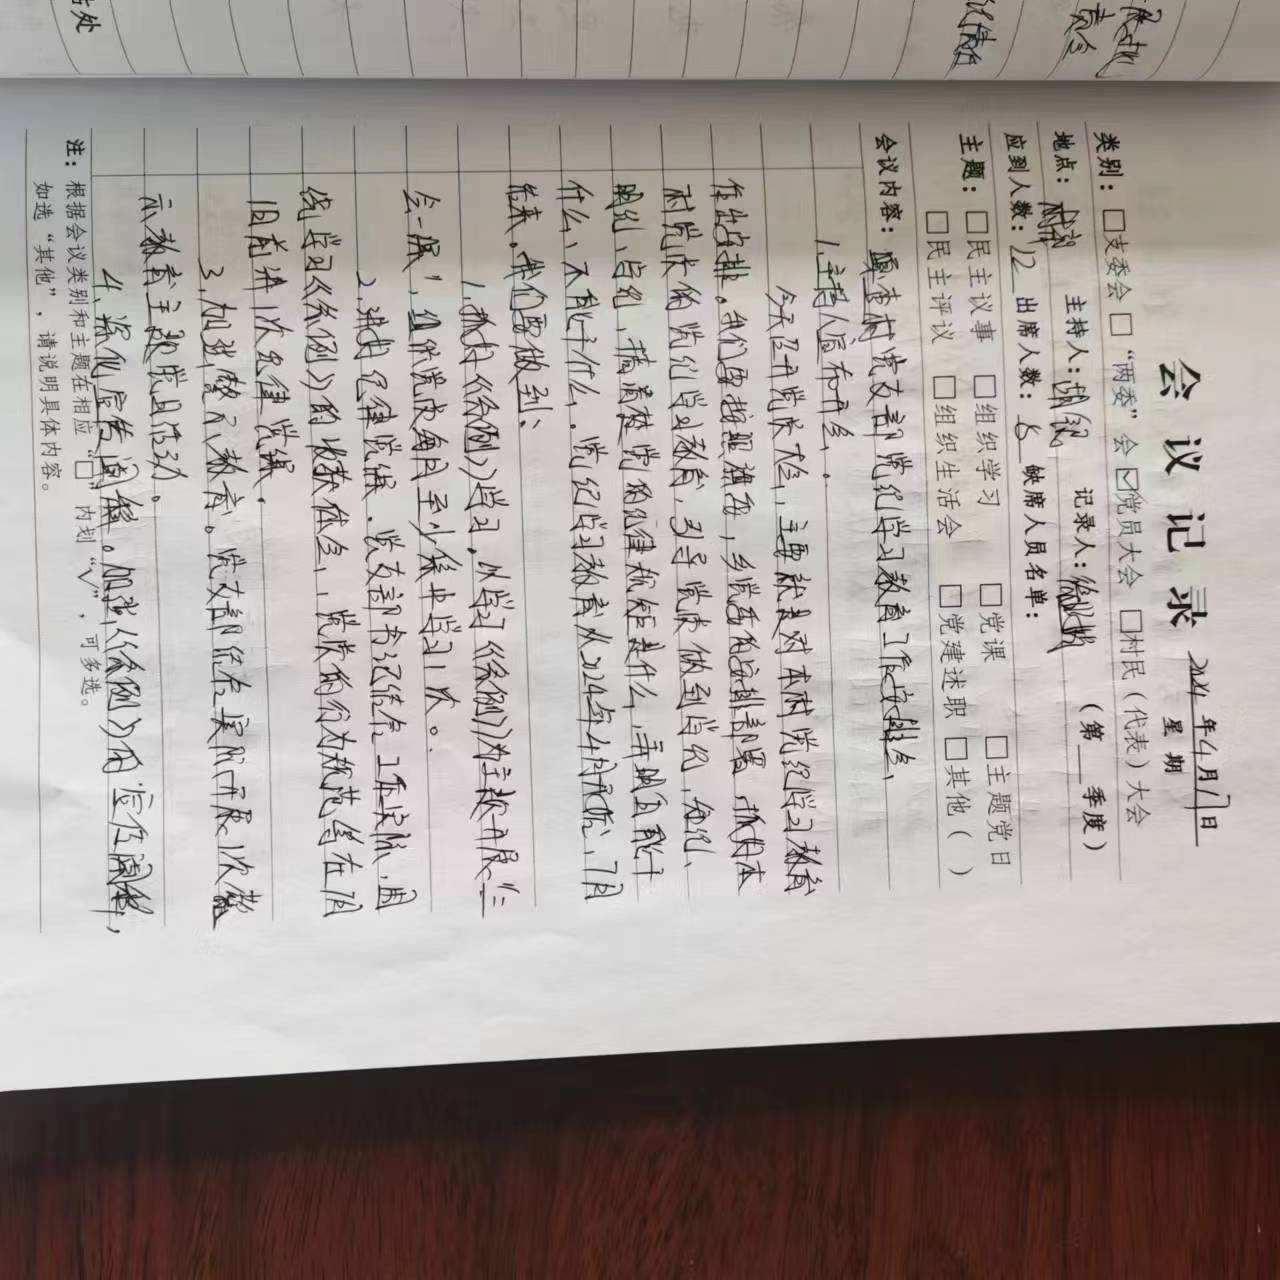 会议记录
2024年4月17日
星期
类别：□支委会 □“两委”会 ☑党员大会 □村民（代表）大会
地点： 主持人： 记录人： （第 季度）
应到人数：12 出席人数： 缺席人员名单：
主题：□民主议事 □组织学习 □党课 □主题党日
□民主评议 □组织生活会 □党建述职 □其他（ ）
会议内容： 村党支部党纪学习教育工作安排会、
1.主持人宣布开会、.
今天召开党员大会，主要就是对本村党纪学习教育
作出安排。我们要按照 ，乡党委的安排部署，抓好本
村党员的党纪学习教育，引导党员做到学纪，知纪、
明纪，守纪，搞清楚党的纪律规矩是什么，弄明白能干
什么，不能干什么。党纪学习教育从2024年4月开始，7月
结束。我们要做到：
1.抓好《条例》学习。以学习《条例》为主题开展“三
会一课”，组织党员每月至少集中学习1次。
2.讲好纪律党课。党支部书记结合工作实际，围
绕学习《条例》的收获体会，党员的行为规范等在7月
1日前讲1次纪律党课.
3.加强警示教育。党支部结合实际开展1次警
示教育主题党日活动。
4.深化宣传阐释。加强《条例》的宣传阐释，
注：根据会议类别和主题在相应“□”内划“√”，可多选。
如选“其他”，请说明具体内容。